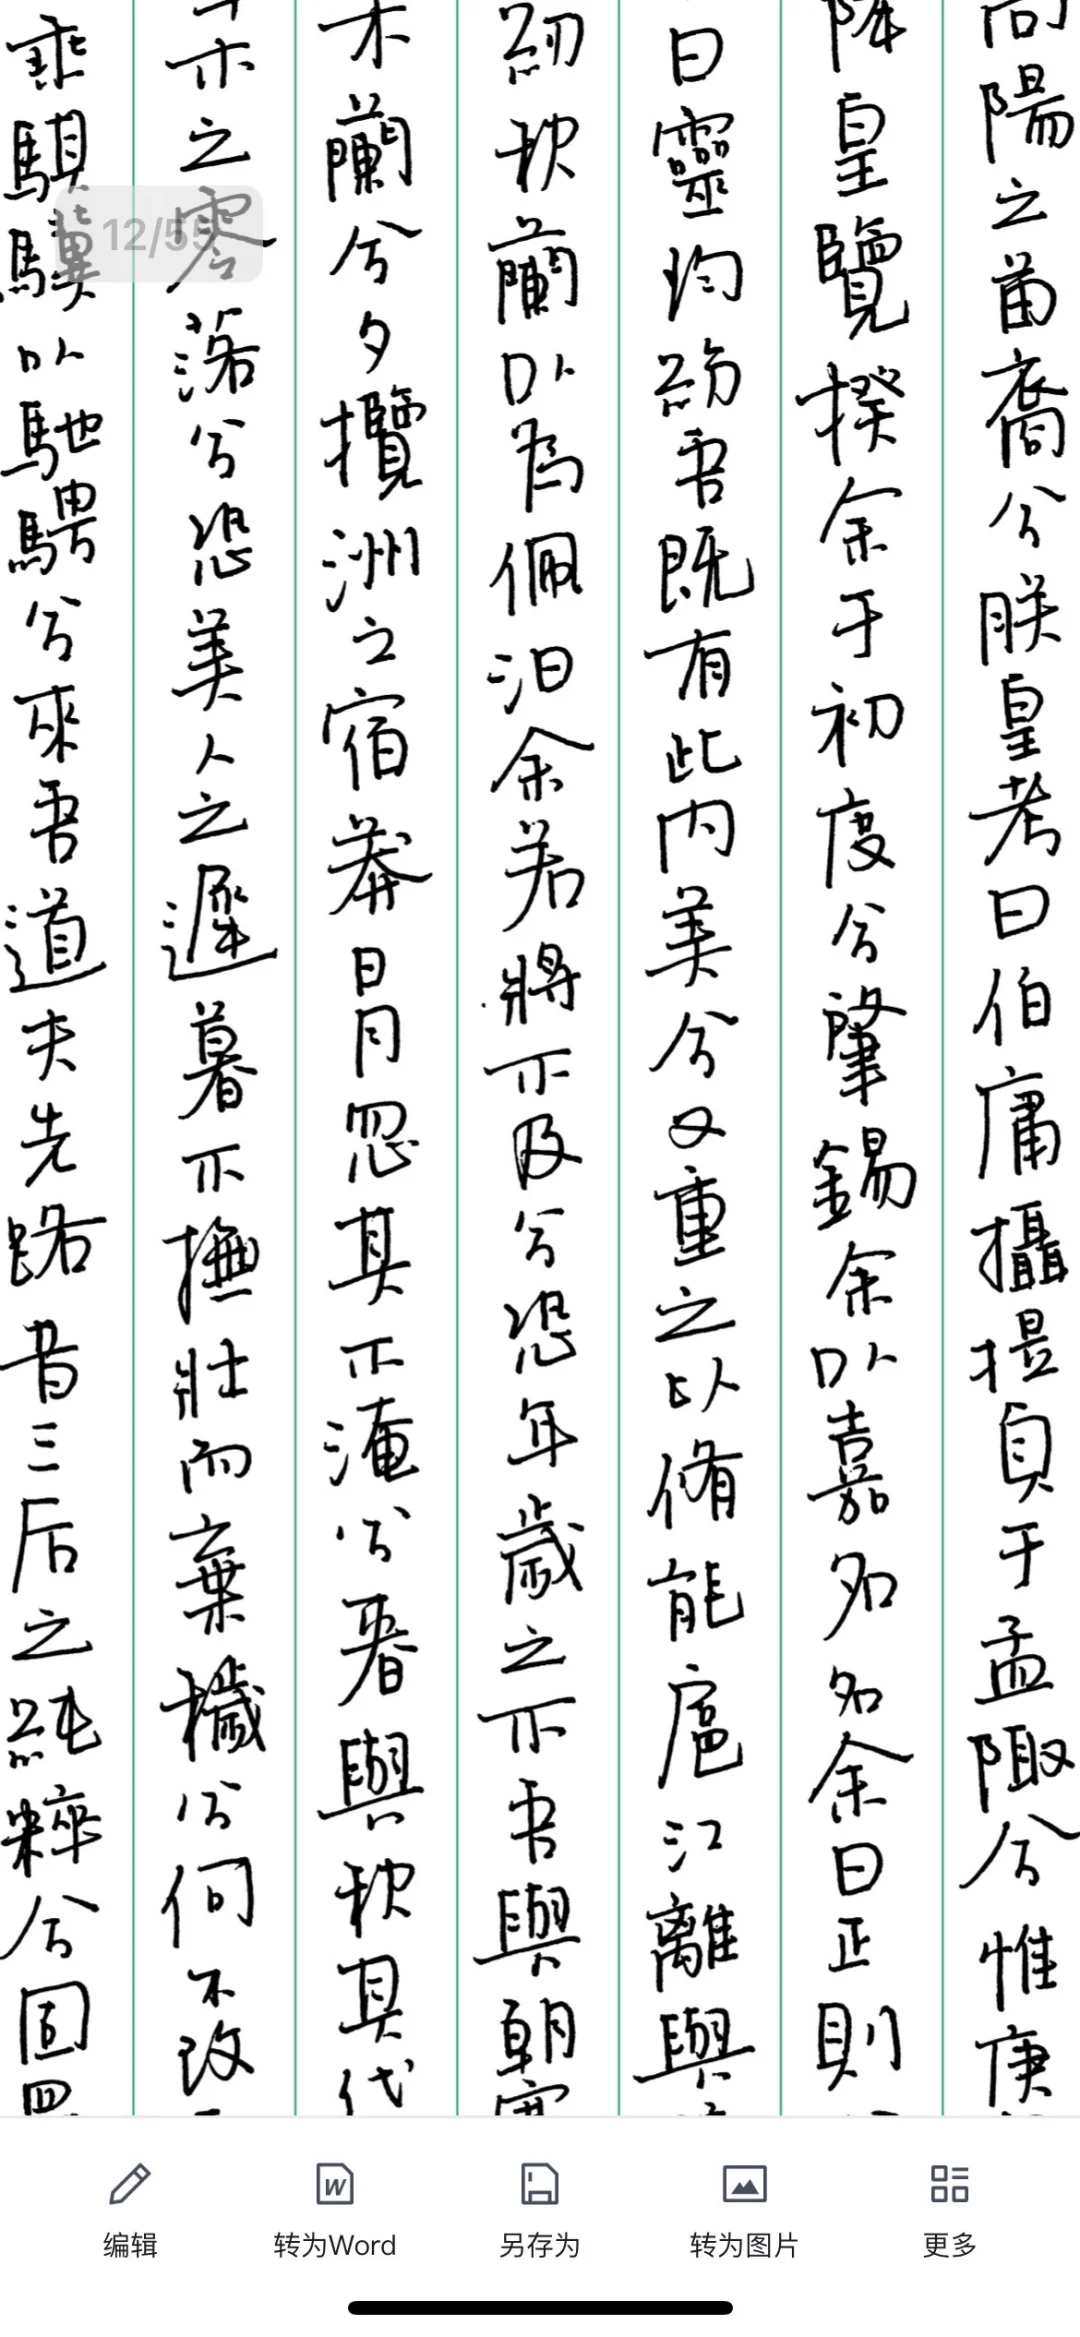 高陽之苗裔兮朕皇考曰伯庸攝提貞于孟陬兮惟庚
降皇覽揆余于初度兮肇錫余以嘉名名余曰正則
曰靈均紛吾既有此內美兮又重之以脩能扈江離與
紉秋蘭以為佩汩余若將不及兮恐年歲之不吾與朝搴
木蘭兮夕攬洲之宿莽日月忽其不淹兮春與秋其代
草木之零落兮恐美人之遲暮不撫壯而棄穢兮何不改
乘騏驥以馳騁兮來吾道夫先路昔三后之純粹兮固眾
12/55
编辑
转为Word
另存为
转为图片
更多